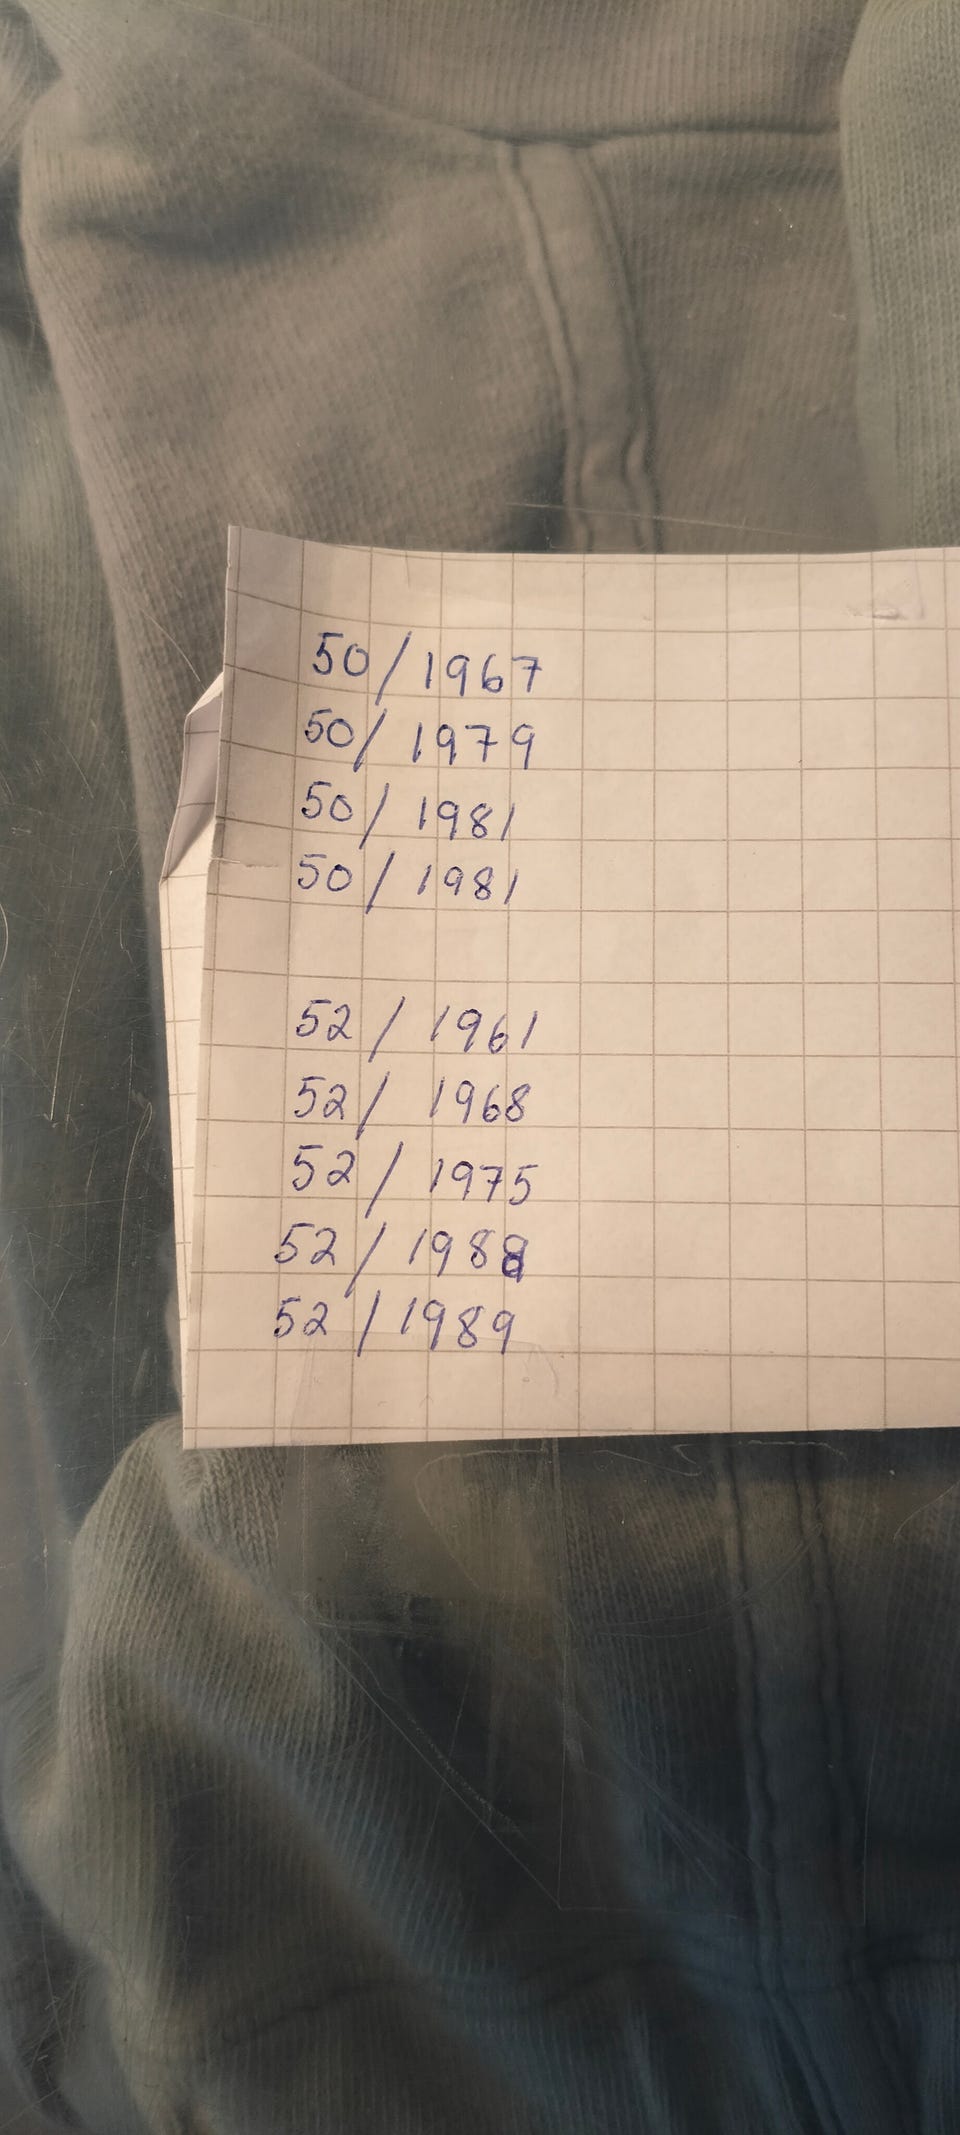 50/1967
50/ 1979
50/ 1981
50/ 1981
52/ 1961
52/ 1968
52/ 1975
52/ 1988
52/1989